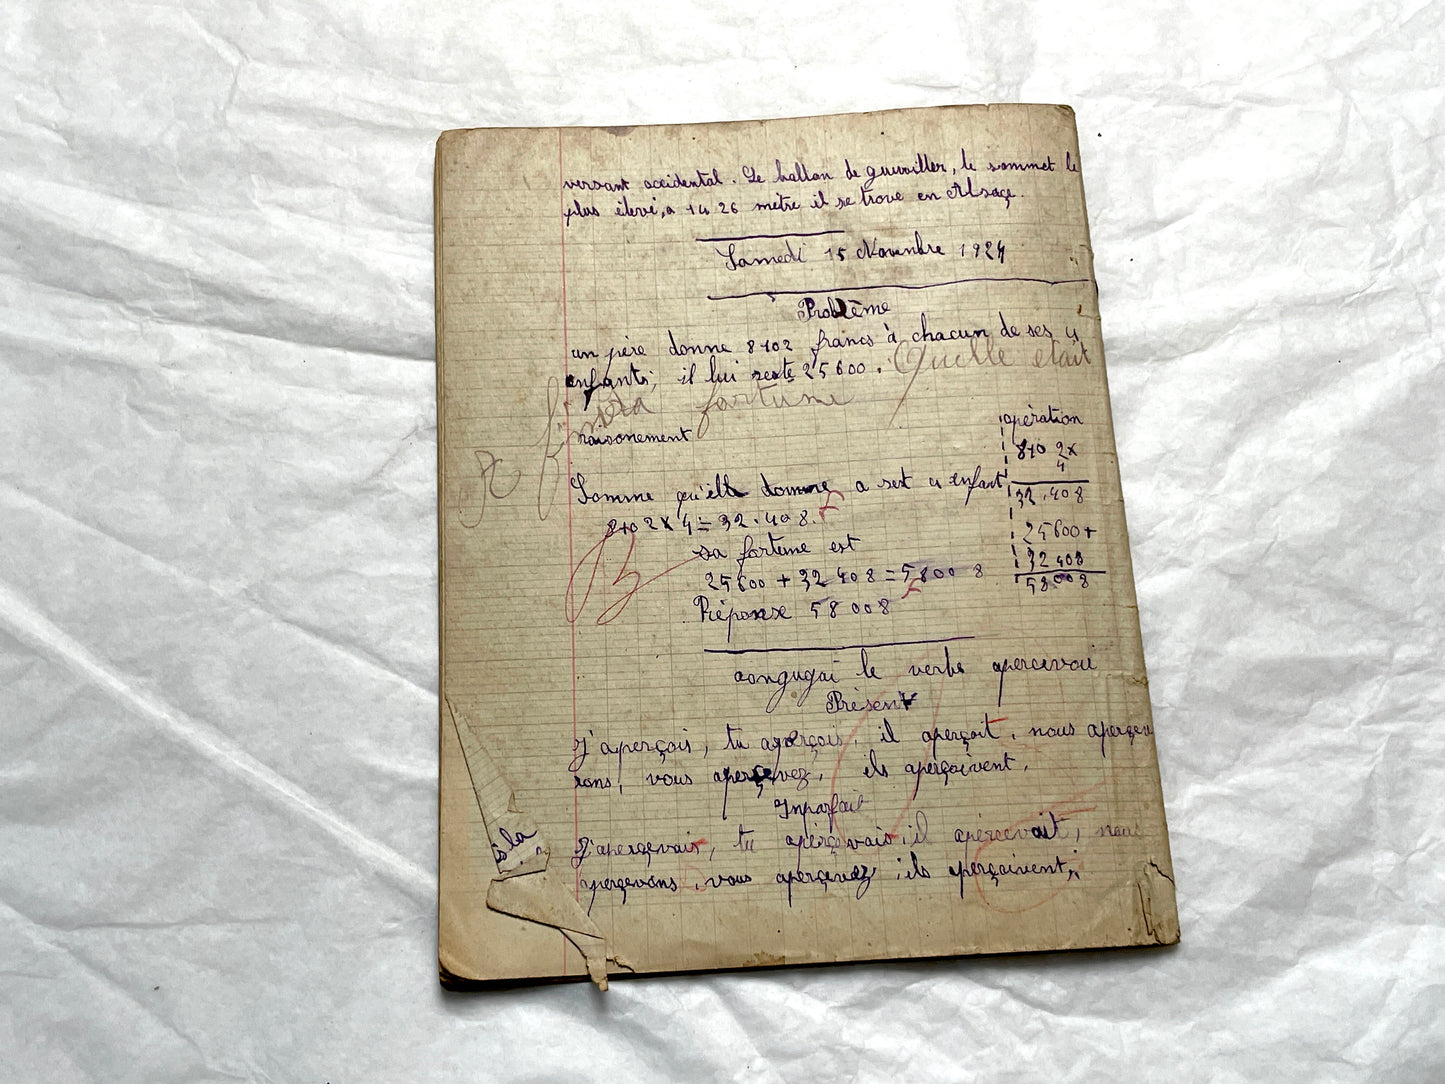 versant occidental. Le ballon de guewiller, le sommet le
plus élevé, a 1426 mètre il se trove en Alsace.
Samedi 15 Novembre 1924
Problème
un père donne 8102 francs à chacun de ses 4
enfants; il lui reste 25600. Quelle était
sa fortune
raisonement
opération
8102x
4
32.408
25600+
32408
58008
Somme qu'elle domme a sest 4 enfant
8102x4=32.408. F
B
sa fortune est
25600+32408=58008
F
Réponse 58008
congugai le verbe apercevoi
Présent
J'aperçois, tu aperçois, il aperçoit, nous aperçeu
vons, vous aperçevez, ils aperçoivent.
Inparfait
J'aperçevais, tu aperçevais, il apercevait, nous
aperçevons, vous aperçevez, ils aperçoivent,
à la